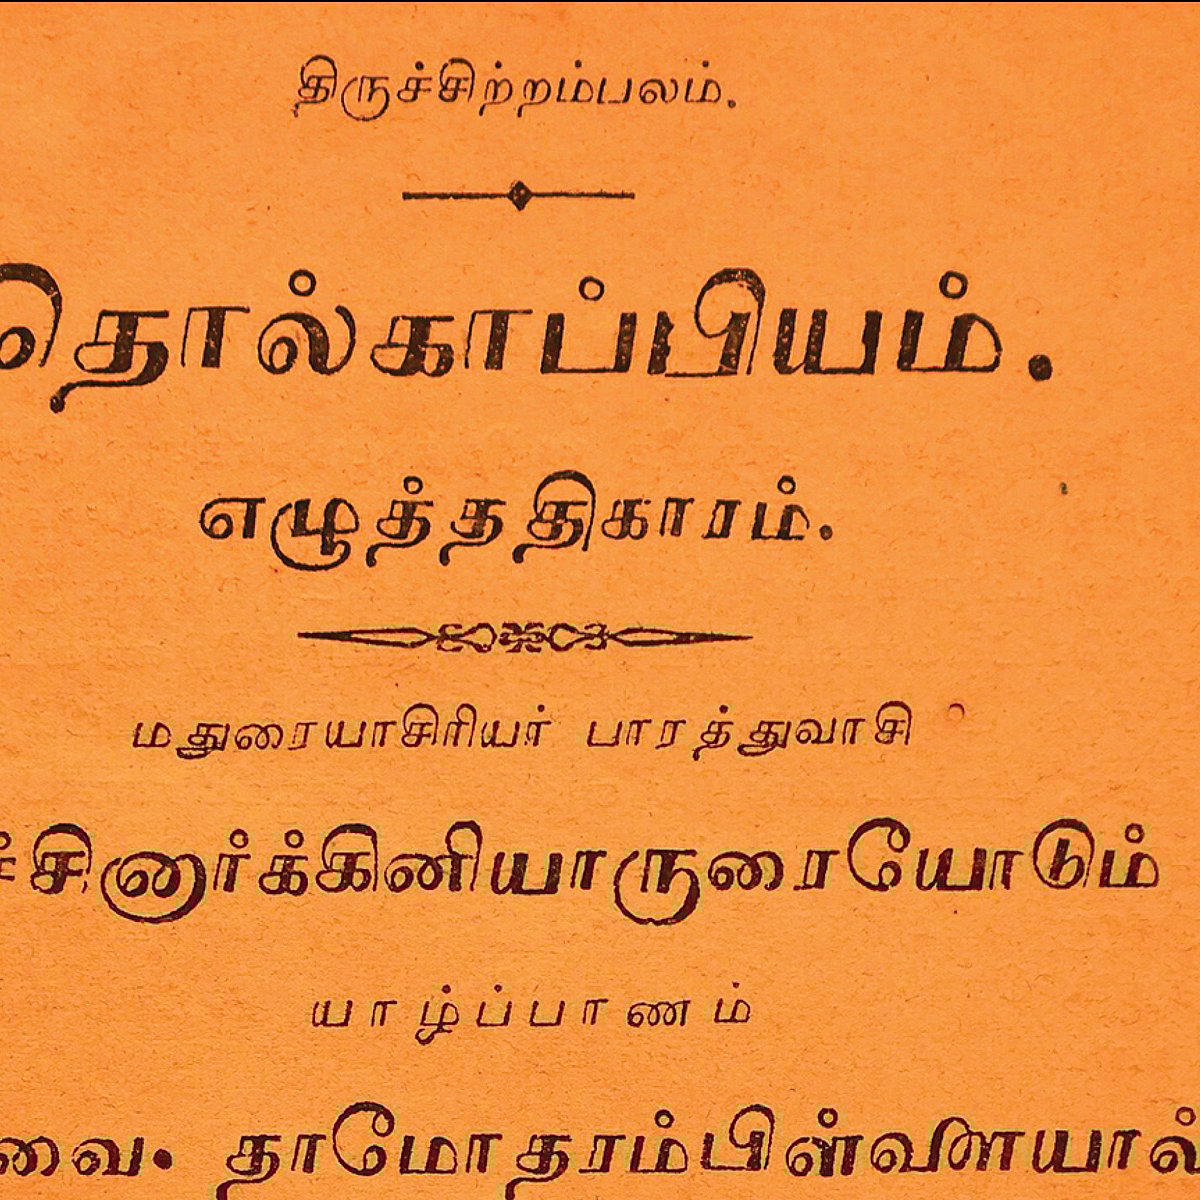 திருச்சிற்றம்பலம்.
தொல்காப்பியம்.
எழுத்ததிகாரம்.
மதுரையாசிரியர் பாரத்துவாசி
ச்சினார்க்கினியாருரையோடும்
யாழ்ப்பாணம்
வை. தாமோதரம்பிள்ளையால்